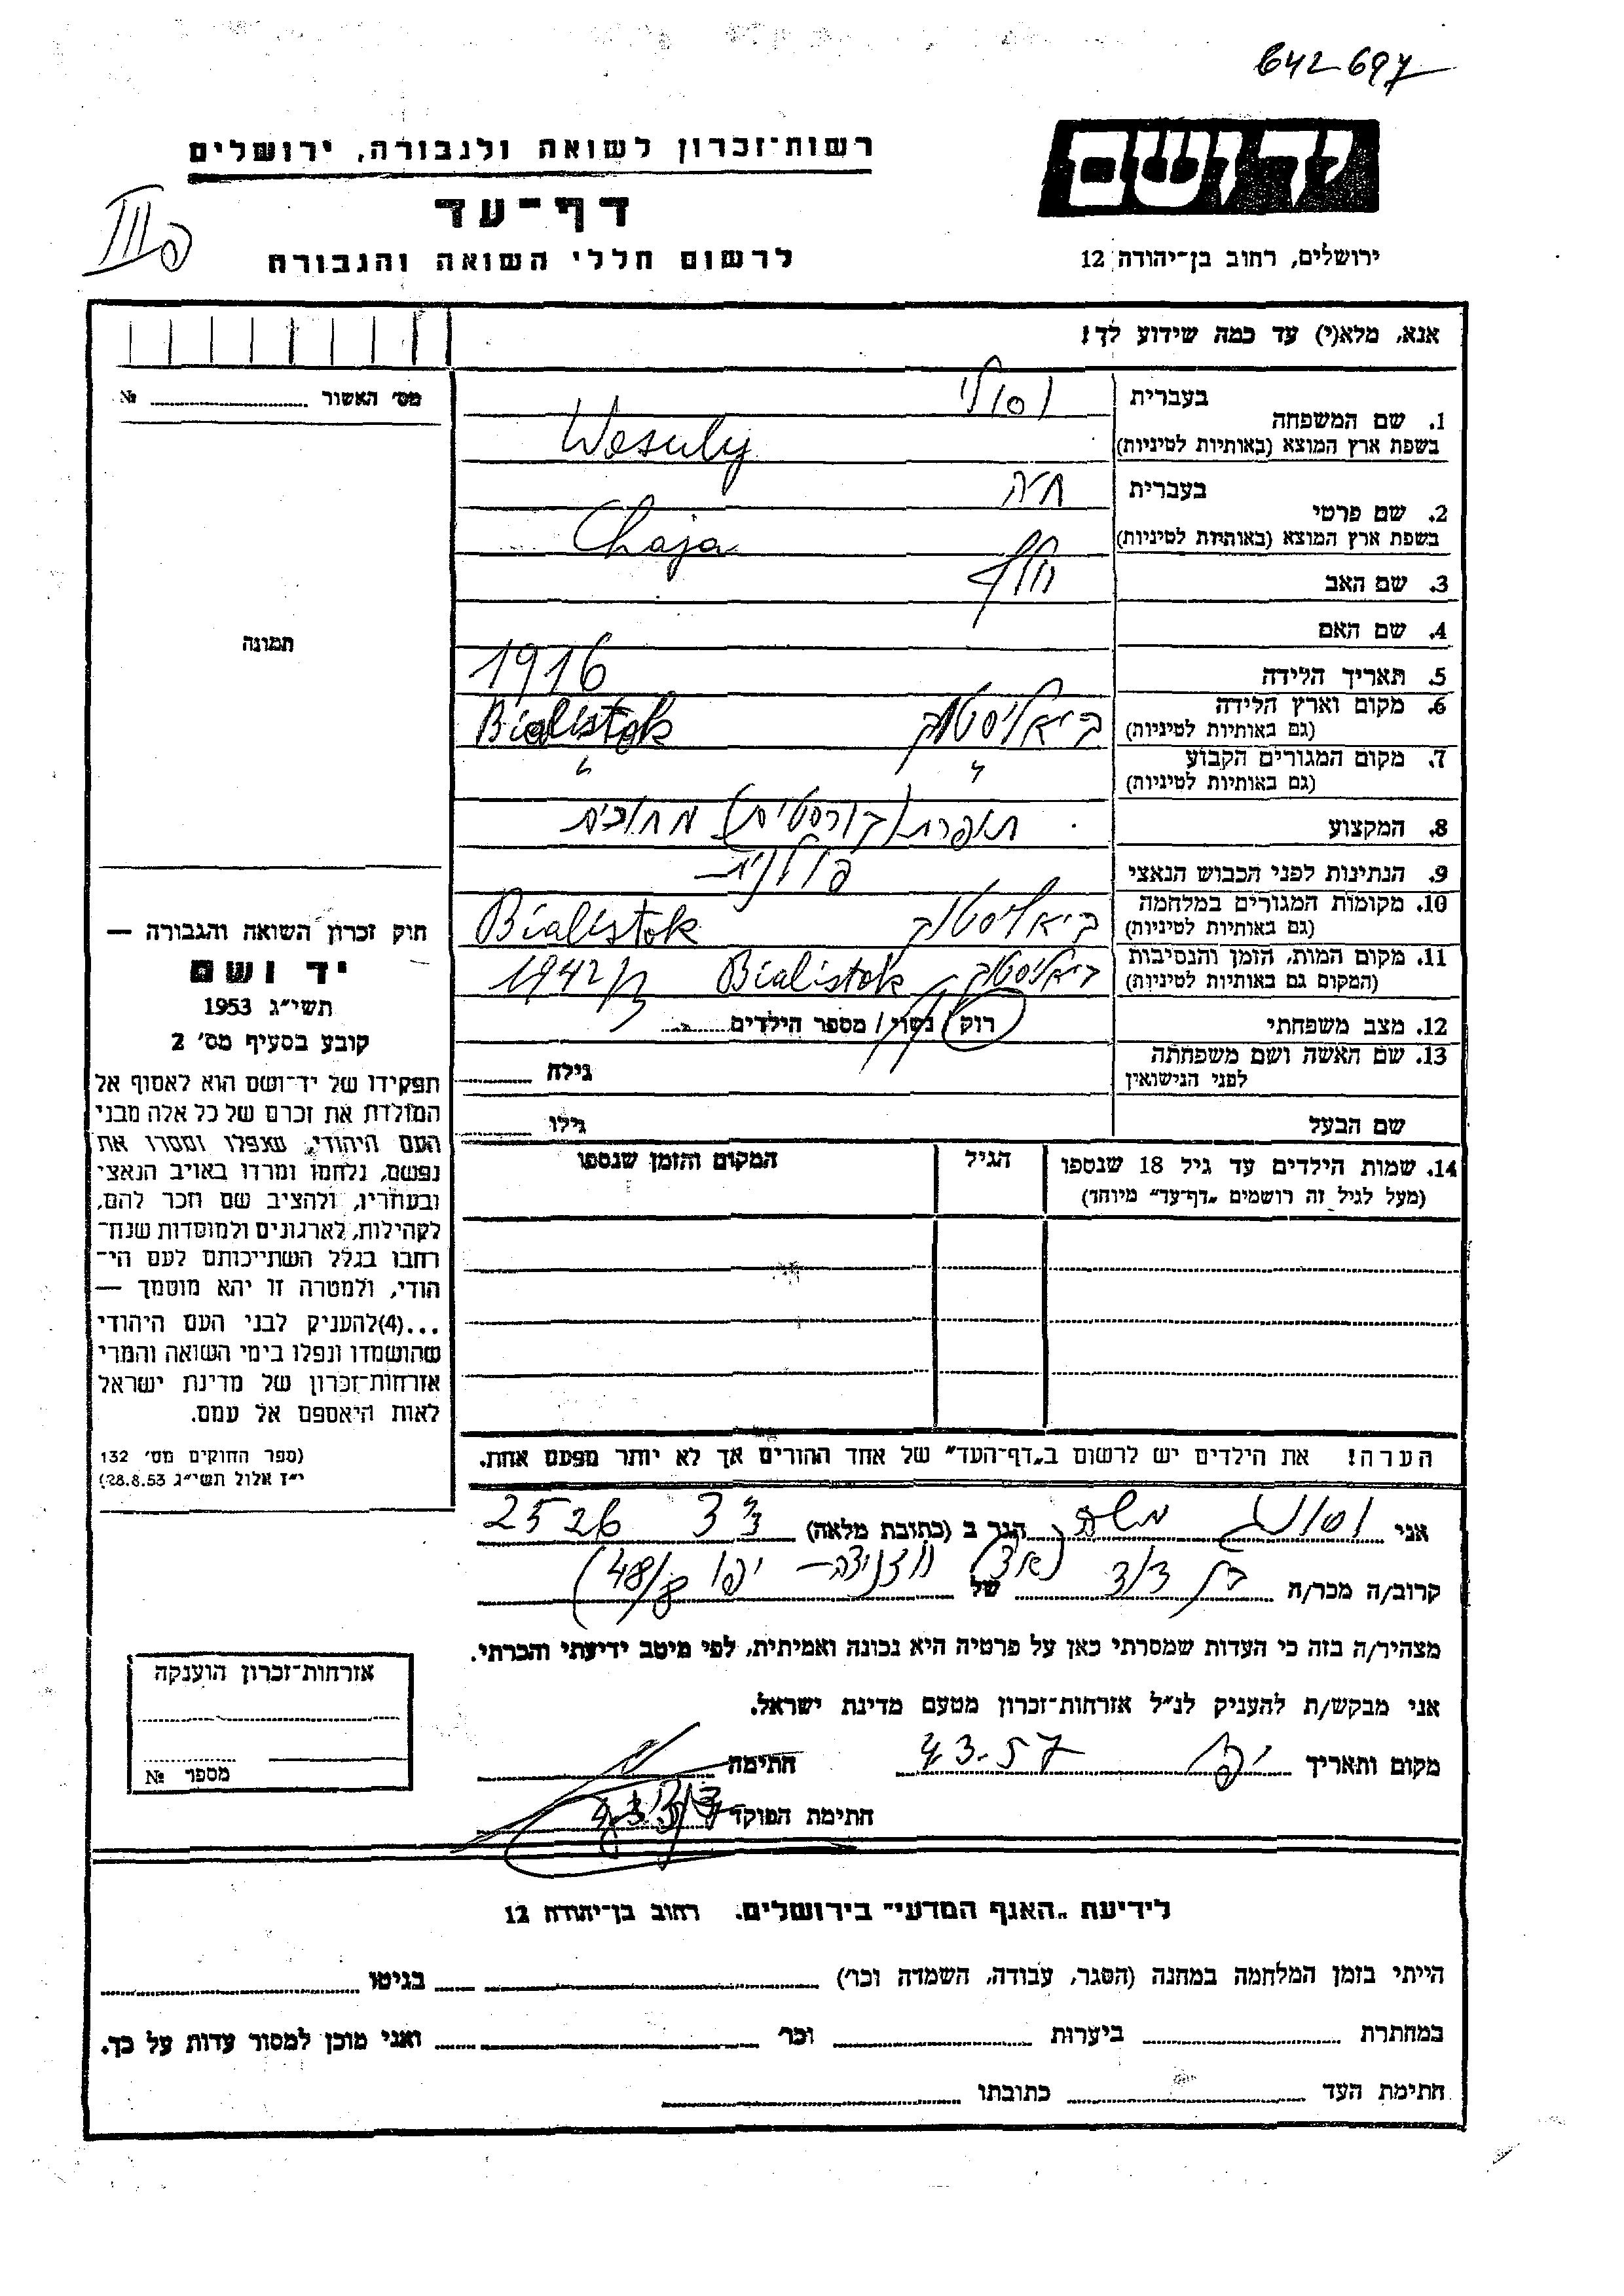 642697
רשות־זכרון לשואה ולגבורה, ירושלים
יד ושם
דף־עד
לרשום חללי השואה והגבורה
ירושלים, רחוב בן־יהודה 12
אנא, מלא(י) עד כמה שידוע לך!
מס׳ האשור № 
1. שם המשפחה
בעברית וסולי
בשפת ארץ המוצא (באותיות לטיניות) Wesuly
2. שם פרטי
בעברית חיה
בשפת ארץ המוצא (באותיות לטיניות) Chaja
3. שם האב
4. שם האם
תמונה
5. תאריך הלידה 1916
6. מקום וארץ הלידה ביאליסטוק Bialistok
(גם באותיות לטיניות)
7. מקום המגורים הקבוע
(גם באותיות לטיניות)
8. המקצוע תופרת (קורסטים) מחוכים
9. הנתינות לפני הכבוש הנאצי פולנית
10. מקומות המגורים במלחמה ביאליסטוק Bialistok
(גם באותיות לטיניות)
11. מקום המות, הזמן והנסיבות ביאליסטוק Bialistok 1942/3
(המקום גם באותיות לטיניות)
12. מצב משפחתי רוק / נשוי / מספר הילדים
13. שם האשה ושם משפחתה גילה
לפני הנישואין
שם הבעל גילו
14. שמות הילדים עד גיל 18 שנספו הגיל המקום והזמן שנספו
(מעל לגיל זה רושמים „דף־עד” מיוחד)
חוק זכרון השואה והגבורה —
יד ושם
תשי״ג 1953
קובע בסעיף מס׳ 2
תפקידו של יד־ושם הוא לאסוף אל
המולדת את זכרם של כל אלה מבני
העם היהודי, שנפלו ומסרו את
נפשם, נלחמו ומרדו באויב הנאצי
ובעוזריו, ולהציב שם וזכר להם,
לקהילות, לארגונים ולמוסדות שנח־
רחבו בגלל השתייכותם לעם הי־
הודי, ולמטרה זו יהא מוסמך —
...(4)להעניק לבני העם היהודי
שהושמדו ונפלו בימי השואה והמרי
אזרחות־זכרון של מדינת ישראל
לאות היאספם אל עמם.
(ספר החוקים מס׳ 132
י״ז אלול תשי״ג 28.8.53)
הערה! את הילדים יש לרשום ב„דף־העד” של אחד ההורים אך לא יותר מפעם אחת.
אני משה הגר ב (כתובת מלאה) 33 2526
קרוב/ה מכר/ה בן דוד של יפו 48/8)
מצהיר/ה בזה כי העדות שמסרתי כאן על פרטיה היא נכונה ואמיתית, לפי מיטב ידיעתי והכרתי.
אני מבקש/ת להעניק לנ״ל אזרחות־זכרון מטעם מדינת ישראל.
מקום ותאריך יפו 4.3.57 חתימה
חתימת הפוקד
אזרחות־זכרון הוענקה
מספר №
לידיעת „האגף המדעי” בירושלים. רחוב בן־יהודה 12
הייתי בזמן המלחמה במחנה (הסגר, עבודה, השמדה וכו׳) בגיטו
במחתרת ביערות וכו׳ ואני מוכן למסור עדות על כך.
חתימת העד כתובתו